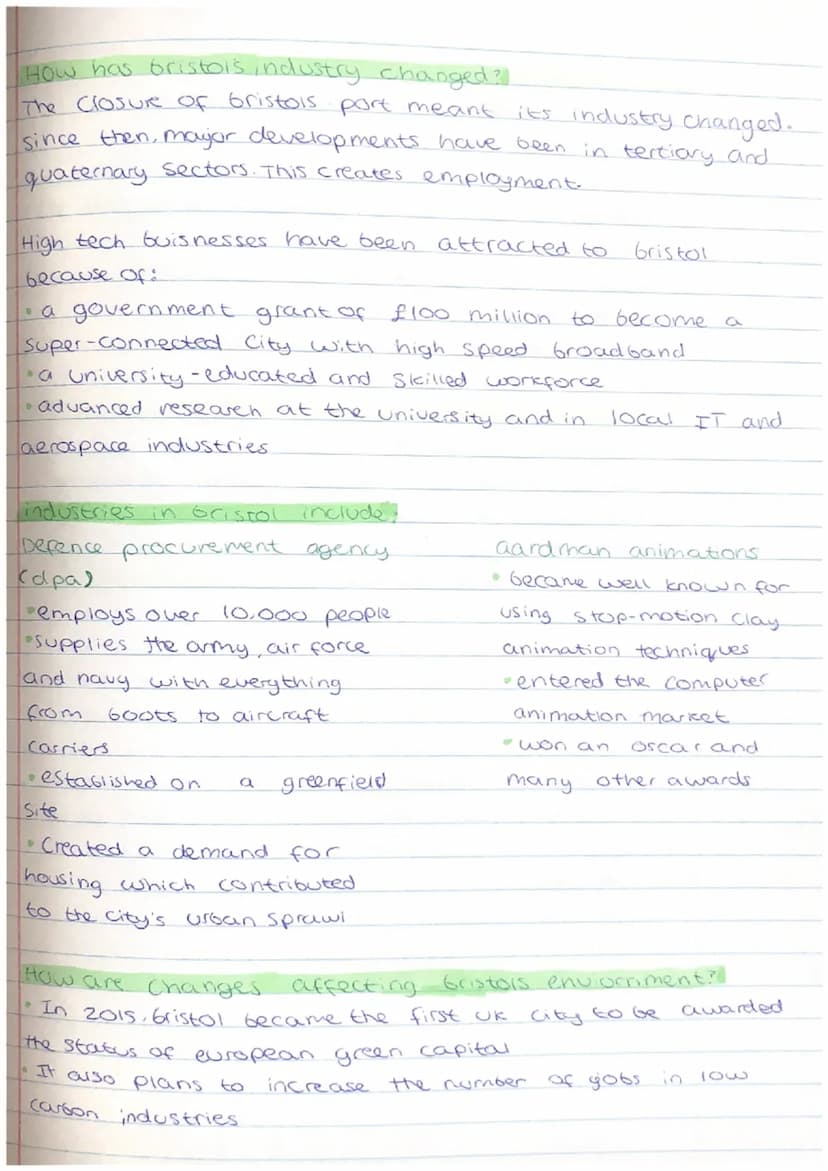 How has bristols industry changed?
The closure of bristols port meant its industry changed.
since then, major developments have been in tertiary and
quaternary sectors. This creates employment.
High tech buisnesses have been attracted to bristol
because of:
• a government grant of £100 million to become a
super-connected city with high speed broadband
• a university-educated and skilled workforce
• advanced research at the university and in local IT and
aerospace industries
industries in bristol include:
Defence procurement agency
(dpa)
• employs over 10,000 people
• supplies the army, air force
and navy with everything
from boots to aircraft
carriers
• established on a greenfield
site
• Created a demand for
housing which contributed
to the city's urban sprawl
aardman animations
• became well known for
using stop-motion clay
animation techniques
• entered the computer
animation market
• won an oscar and
many other awards
How are changes affecting bristols enviornment?
• In 2015, bristol became the first UK city to be awarded
the status of european green capital
• It also plans to increase the number of jobs in low
carbon industries